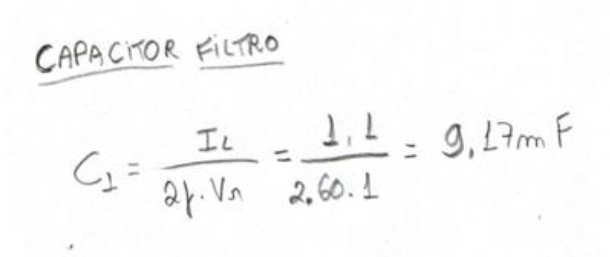 CAPACITOR FILTRO
C1 = IL / 2f.Vr = 1,1 / 2.60.1 = 9,17mF